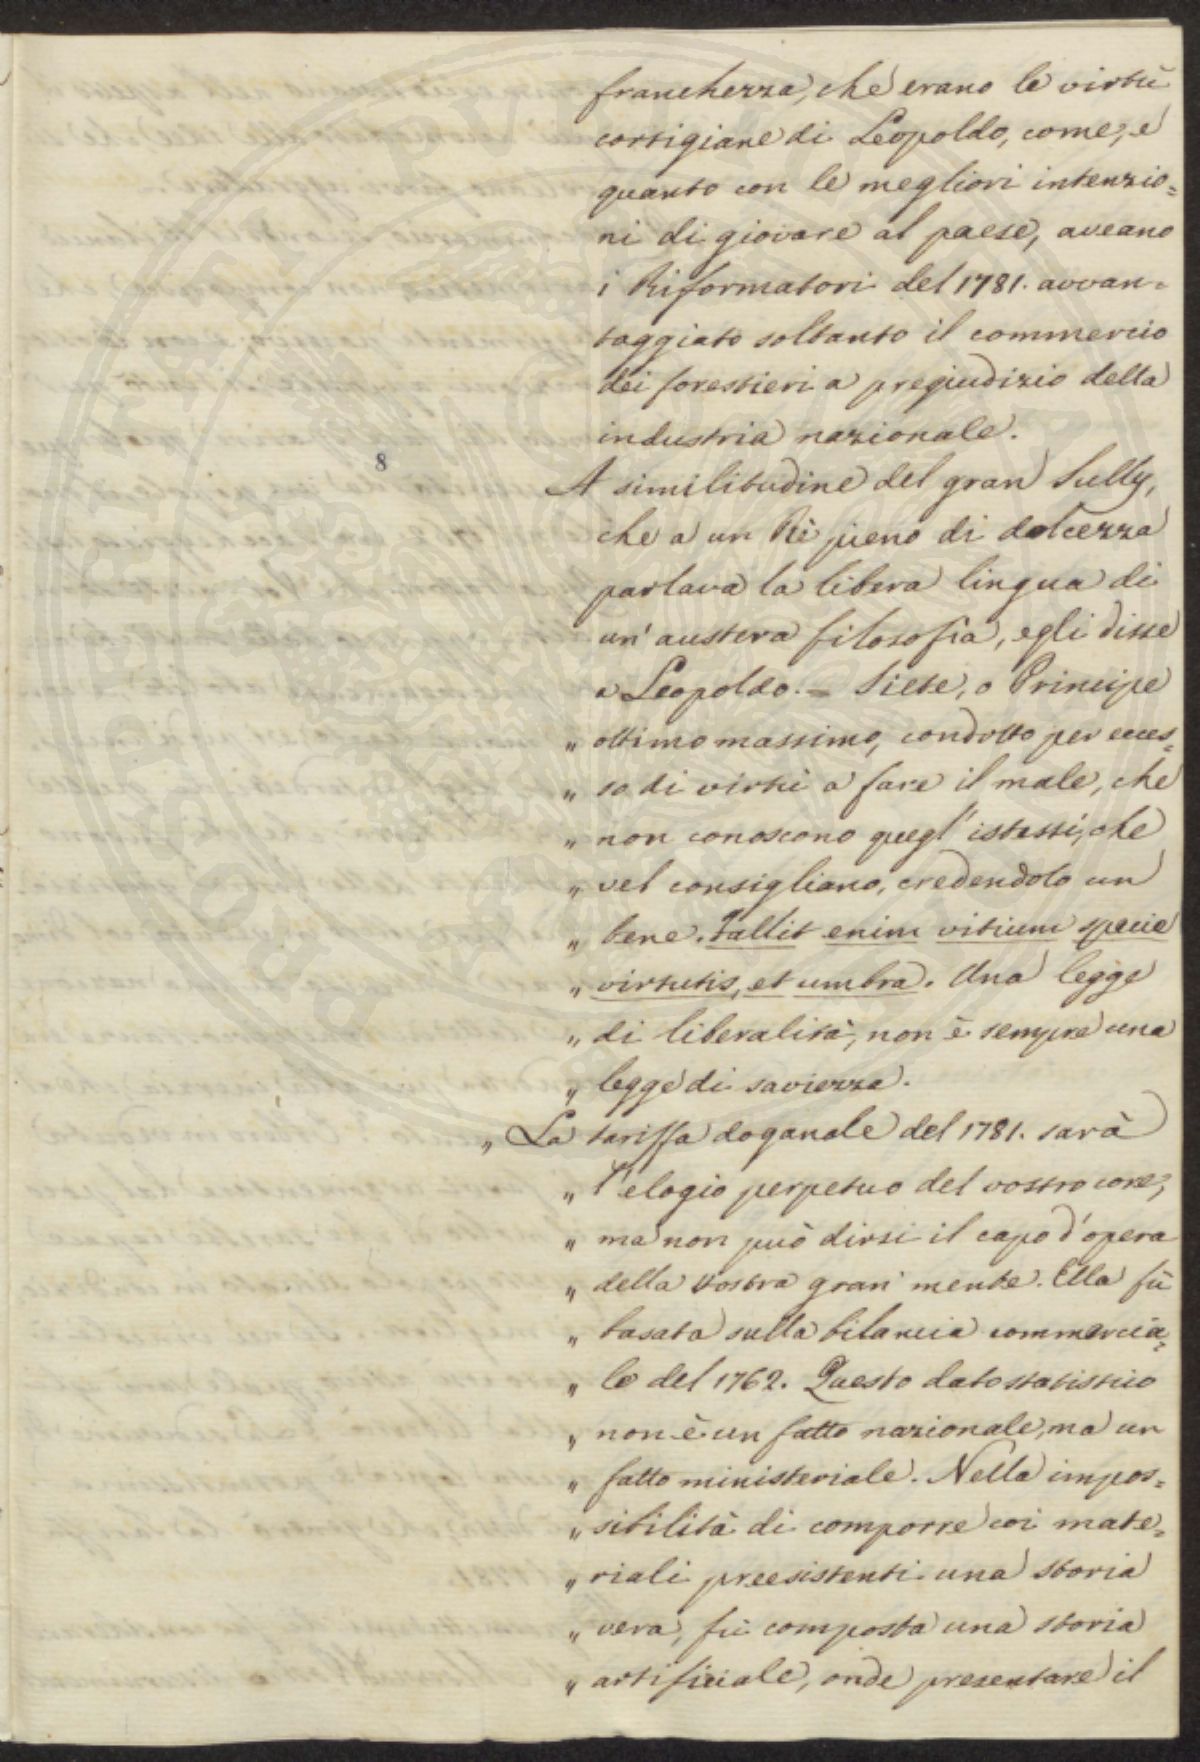 franchezza, che erano le virtù
cortigiane di Leopoldo, come, e
quanto con le megliori intenzio=
ni di giovare al paese, aveano
i Riformatori del 1781. avvan=
taggiato soltanto il commercio
dei forestieri a pregiudizio della
industria nazionale.
8
A similitudine del gran Sully,
che a un Rè pieno di dolcezza
parlava la libera lingua di
un' austera filosofia, egli disse
a Leopoldo. = Siete, o Principe
„ ottimo massimo, condotto per ecces=
„ so di virtù a fare il male, che
„ non conoscono quegl' istessi, che
„ vel consigliano, credendolo un
„ bene. Fallit enim vitium specie
„ virtutis, et umbra. Una legge
„ di liberalità, non è sempre una
„ legge di saviezza.
„ La tariffa doganale del 1781. sarà
„ l' elogio perpetuo del vostro core,
„ ma non può dirsi il capo d' opera
„ della vostra gran mente. Ella fù
„ basata sulla bilancia commercia=
„ le del 1762. Questo dato statistico
„ non è un fatto nazionale, ma un
„ fatto ministeriale. Nella impos=
„ sibilità di comporre coi mate=
„ riali preesistenti una storia
„ vera, fù composta una storia
„ artificiale, onde presentare il